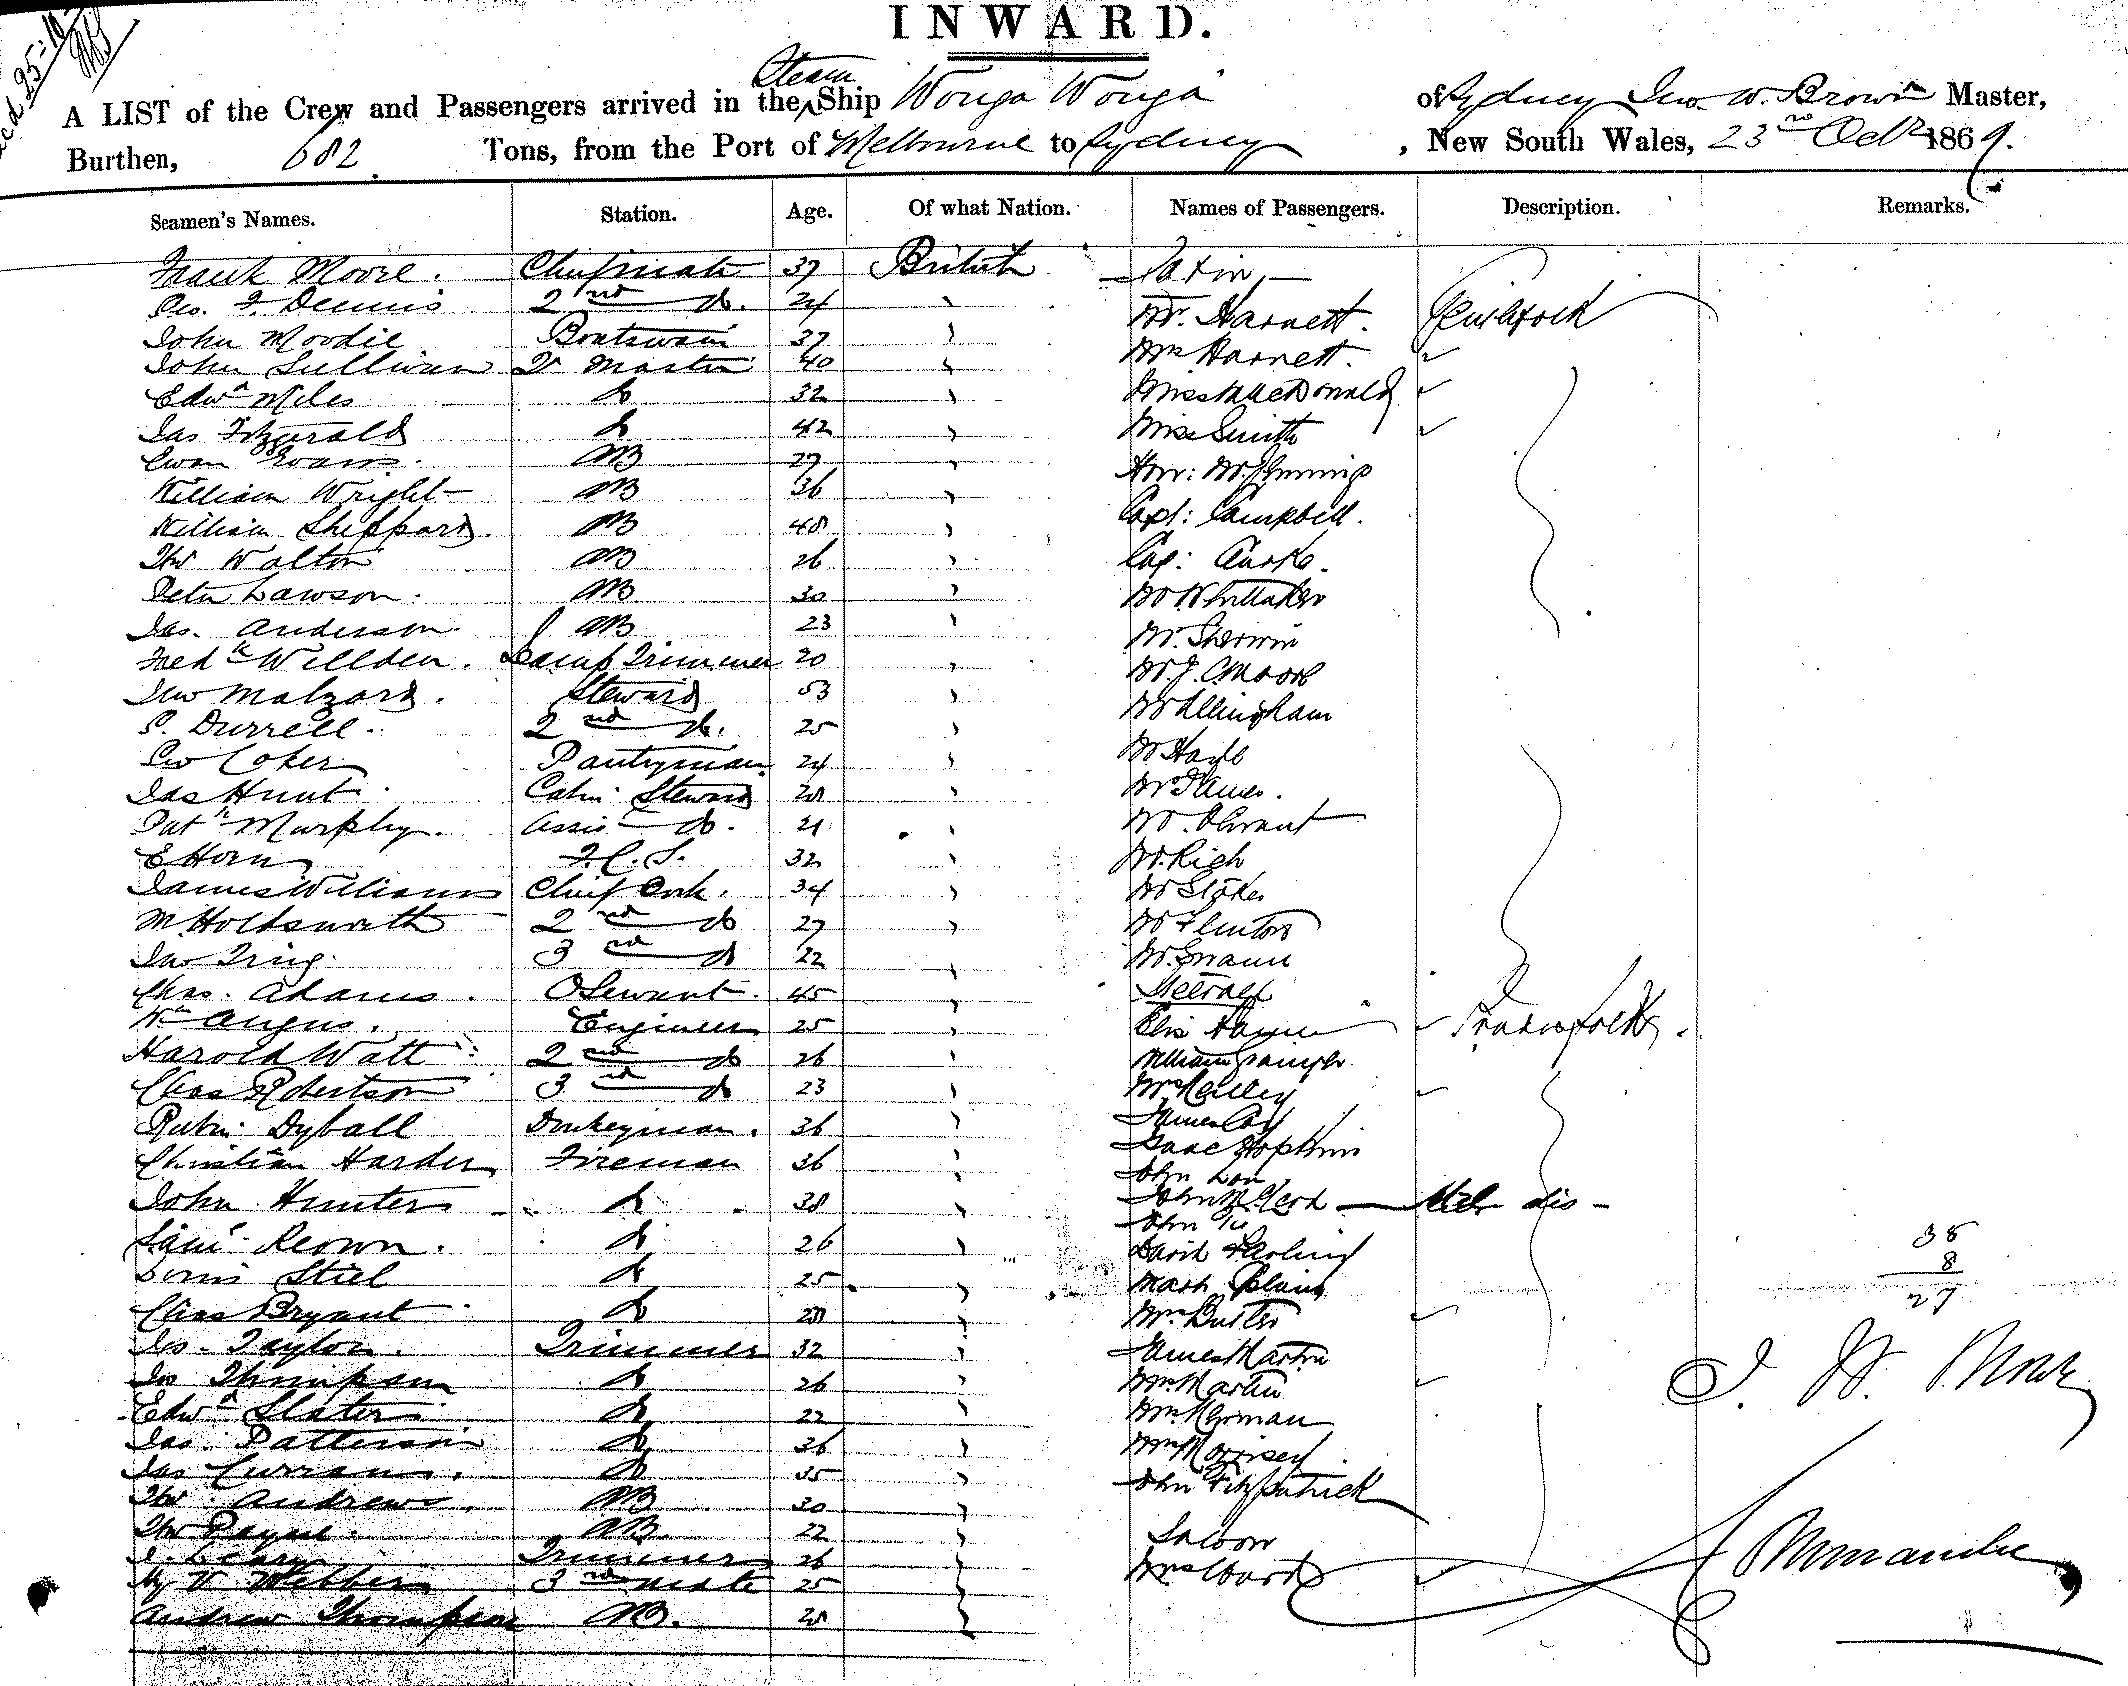 INWARD.
A LIST of the Crew and Passengers arrived in the Steam Ship Wonga Wonga of Sydney Jno. W. Brown Master,
Burthen, 682 Tons, from the Port of Melbourne to Sydney, New South Wales, 23rd Octr 1869.
Seamen's Names. Station. Age. Of what Nation. Names of Passengers. Description. Remarks.
Frank Moore. Chief mate 37 British
Geo. F. Dennis 2nd do. 24 Mr. Harnett. Gentlefolk
John Moodie Boatswain 37 Mrs Harnett.
John Sullivan Qr Master 40
Edwd Miles do 32 Miss MacDonald
Jas Fitzgerald do 42 Miss Smith
Ewan Evans. AB 27 Hon: Mr.
William Wright AB 36 Capt: Campbell.
William Sheppard. AB 48 Cap:
Thos Walton AB 26
Peter Lawson. AB 30 Mr Whittaker
Jas. Anderson AB 23 Mr. Sherwin
Fredk Willden. Lamp Trimmer 20 Mr. J. C. Moore
Jno Malzard. Steward 53 Mr Allingham
P. Durrell. 2nd do. 25
Geo Coker Pantryman 24 Mr Hayle
Jas Hunt Cabin Steward 28 Mr James.
Patk Murphy. Assist do. 21 Mr.
E Horn F.C.S. 32 Mr. Rich
James Williams Chief Cook. 34 Mr Stokes
M. Holdsworth 2nd do 27 Mr
Jno Tring 3rd do 22 Mr. Swann
Chas. Adams. O Servant. 45 Steerage
Wm Angus. Engineer 25 Tradesfolk.
Harold Watt 2nd do 26 William Grainger
Chas Robertson 3rd do 23 Mrs Kelley
Rubin Dyball Donkeyman. 36 James
Christian Harder Fireman 36 Isaac Hopkins
John
John Hunter do 38 John
John
Saml Keown. do 26 David
Louis Stiel do 25 Mark
Chas Bryant do 28 Mrs Butler
Jas. Taylor. Trimmer 32 James Martin
Jno Thompson do 26 Mrs Martin
Edwd Slater do 22 Mrs
Jas. Patterson do 36 Mrs Morrisey.
Jas Curran. do 35 John Fitzpatrick
Thos Andrews. AB 30
Thos Payne. AB. 22 Saloon
J. Leary Trimmer 26 Mrs Ward
Hy V Webber 3rd mate 25
Andrew Thompson AB. 28
35
8
27
J. W. Brown
Commander